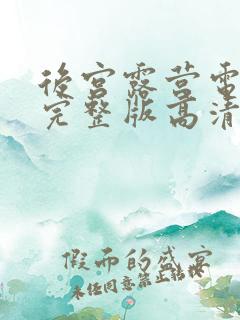 後宫露营電
完整版高清
假面的盛宴
未经同意禁止转载